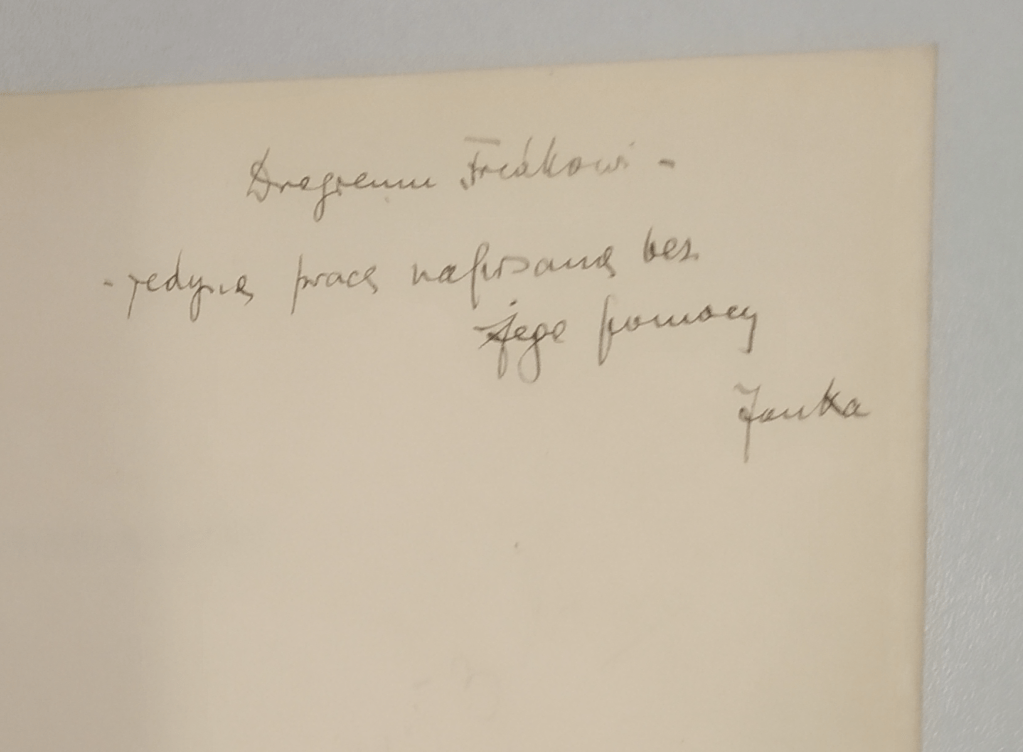 Drogiemu Fredkowi -
- jedyną pracę napisaną bez
Jego pomocy
Janka